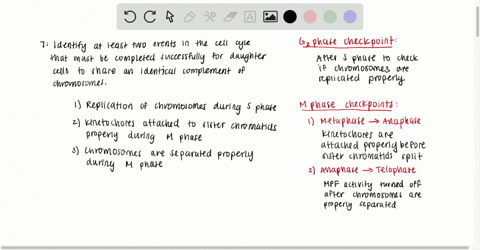 7: Identify at least two events in the cell cycle
that must be completed successfully for daughter
cells to share an identical complement of
chromosomes.
1) Replication of chromosomes during S phase
2) Kinetochores attached to sister chromatids
properly during M phase
3) Chromosomes are separated properly
during M phase
G2 phase checkpoint:
After S phase to check
if chromosomes are
replicated properly
M phase checkpoints:
1) Metaphase → Anaphase
Kinetochores are
attached properly before
sister chromatids split
2) Anaphase → Telophase
MPF activity turned off
after chromosomes are
properly separated